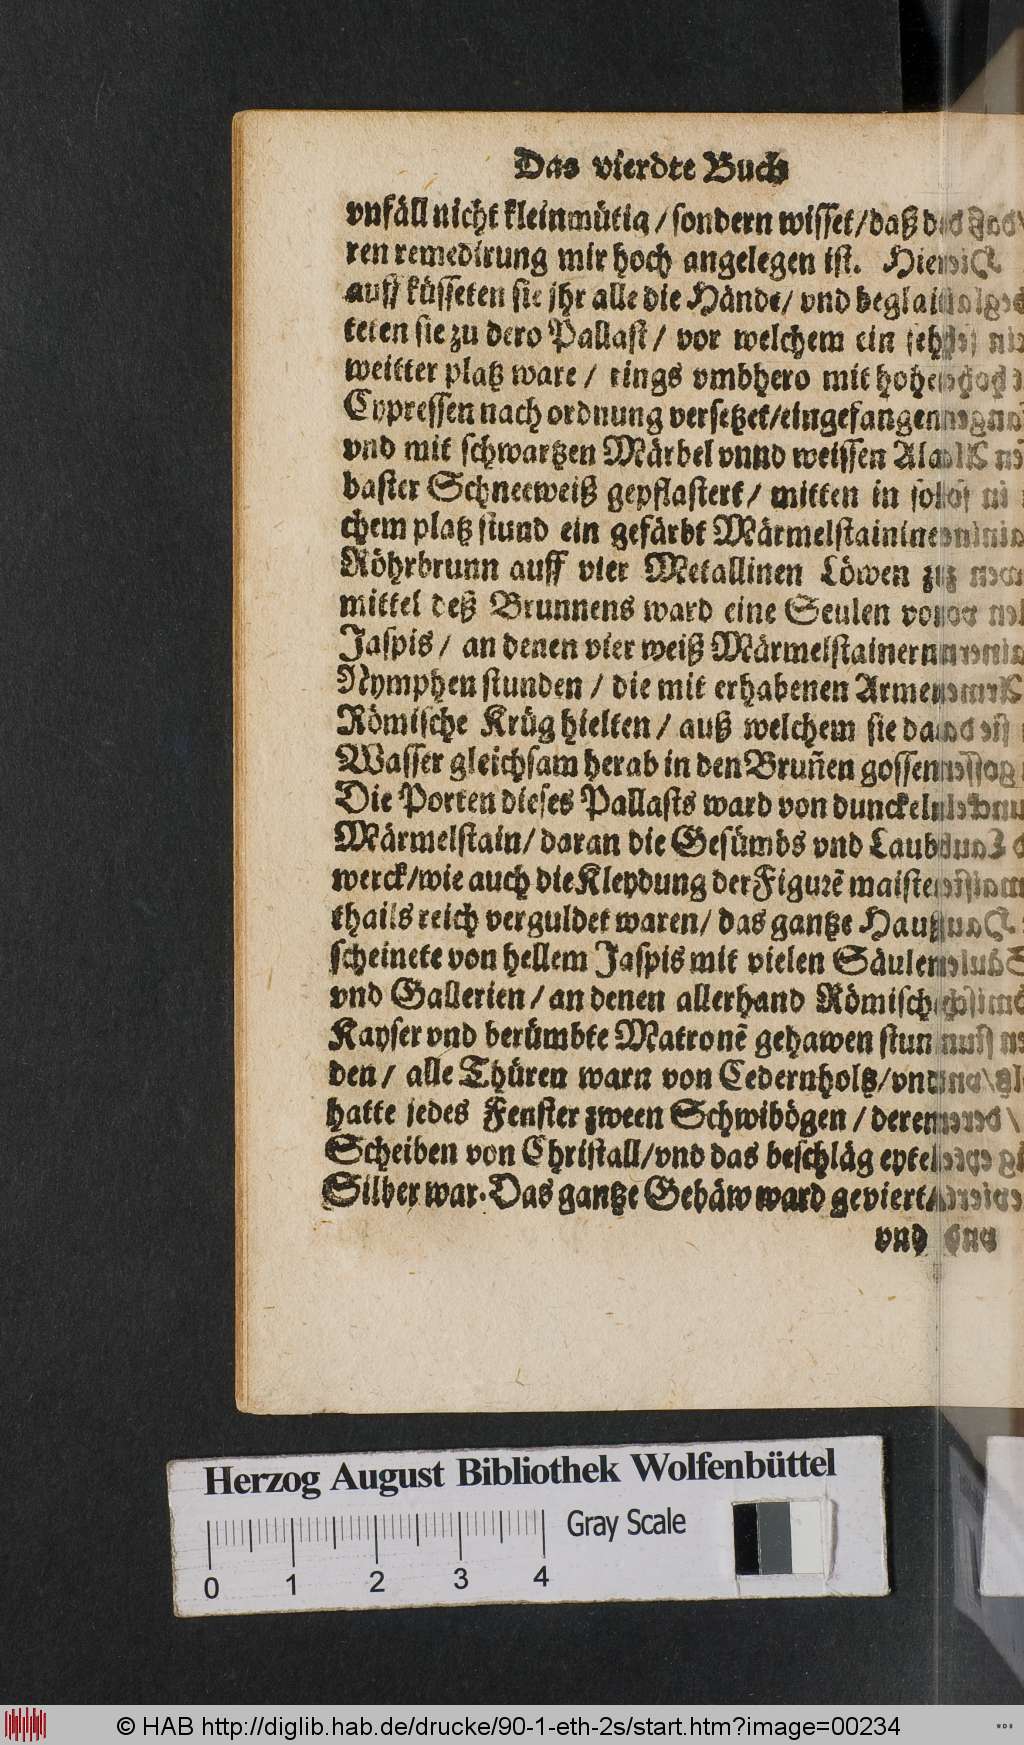 Das vierdte Buch
vnfäll nicht kleinmütig / sondern wisset / daß de-
ren remedirung mir hoch angelegen ist. Hier-
auff küsseten sie jhr alle die Hände / vnd beglai-
teten sie zu dero Pallast / vor welchem ein sehr
weitter platz ware / rings vmbhero mit hohen
Cypressen nach ordnung versetzet / eingefangen
vnd mit schwartzen Märbel vnnd weissen Ala-
baster Schneeweiß gepflastert / mitten in sol-
chem platz stund ein gefärbt Märmelstainine
Röhrbrunn auff vier Metallinen Löwen zu
mittel deß Brunnens ward eine Seulen von
Jaspis / an denen vier weiß Märmelstainern
Nymphen stunden / die mit erhabenen Armen
Römische Krüg hielten / auß welchem sie da
Wasser gleichsam herab in den Brun̄en gossen
Die Porten dieses Pallasts ward von dunckeln
Märmelstain / daran die Gesümbs vnd Laub-
werck / wie auch die Kleydung der Figurē maisten
thails reich verguldet waren / das gantze Hauß
scheinete von hellem Jaspis mit vielen Säulen
vnd Gallerien / an denen allerhand Römisch
Kayser vnd berümbte Matronē gehawen stun
den / alle Thüren warn von Cedernholtz / vnd
hatte jedes Fenster zween Schwibögen / deren
Scheiben von Christall / vnd das beschläg eytel
Silber war. Das gantze Gebäw ward geviert /
vnd
Herzog August Bibliothek Wolfenbüttel
Gray Scale
0 1 2 3 4
© HAB http://diglib.hab.de/drucke/90-1-eth-2s/start.htm?image=00234